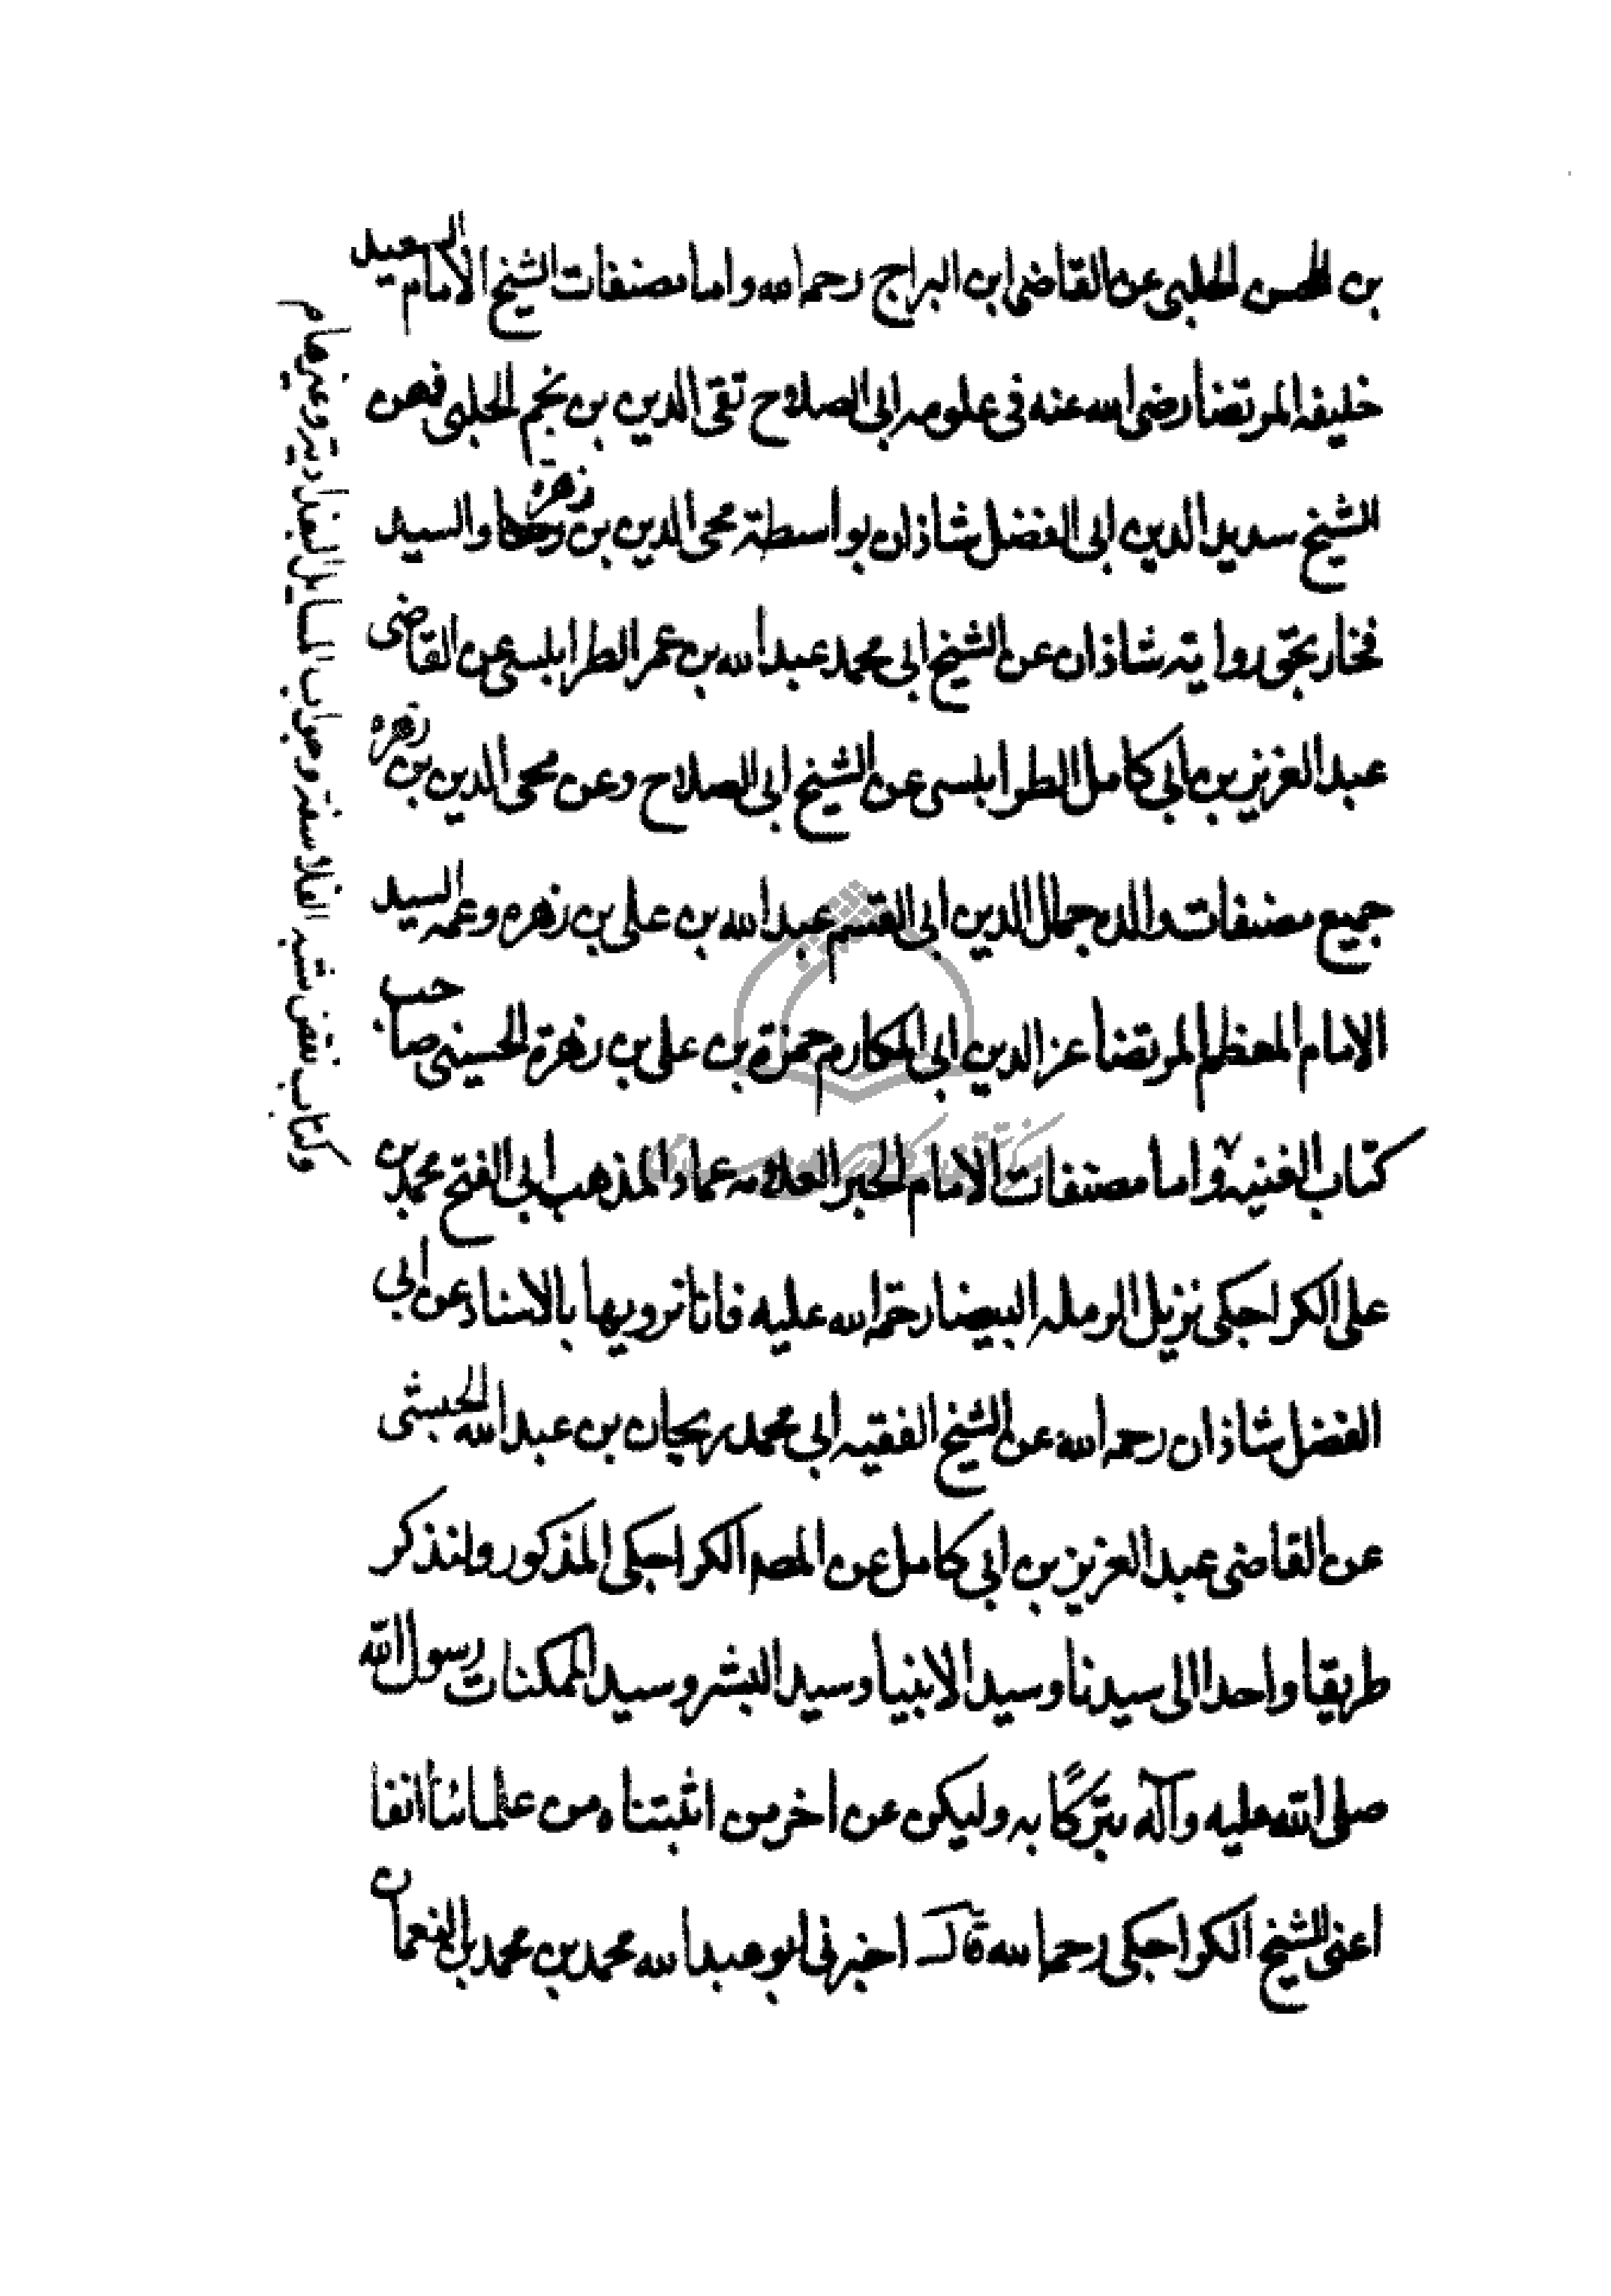 بن المحسن الحلبى عن القاضى ابن البراج رحمه الله واما مصنفات الشيخ الامام السعيد
خليفه المرتضا رضى الله عنه فى علومه ابى الصلاح تقى الدين بن نجم الحلبى فعن
الشيخ سديد الدين ابى الفضل شاذان بواسطة محى الدين بن زهرة والسيد
فخار بحق روايته شاذان عن الشيخ ابى محمد عبد الله بن عمر الطرابلسى عن القاضى
عبد العزيز بن ابى كامل الطرابلسى عن الشيخ ابى الصلاح وعن محى الدين بن زهره
جميع مصنفات والده جمال الدين ابى القسم عبد الله بن على بن زهره وعمه السيد
الامام المعظم المرتضا عز الدين ابى المكارم حمزة بن على بن زهرة الحسينى صاحب
كتاب الغنيه واما مصنفات الامام الحبر العلامه عماد المذهب ابى الفتح محمد بن
على الكراجكى نزيل الرمله البيضا رحمة الله عليه فانا نرويها بالاسناد عن ابى
الفضل شاذان رحمه الله عن الشيخ الفقيه ابى محمد ريحان بن عبد الله الحبشى
عن القاضى عبد العزيز بن ابى كامل عن المصه الكراجكى المذكور ولنذكر
طريقا واحدا الى سيدنا وسيد الانبيا وسيد البشر وسيد الممكنات رسول الله
صلى الله عليه وآله تبركًا به وليكن عن اخر من اثبتناه من علمائنا انفا
اعنى الشيخ الكراجكى رحمه الله قال اخبرنى ابو عبد الله محمد بن محمد بن النعمان
وكتاب نقض شبه الفلاسفة وجواب المسايل البغدادية وغيرها م